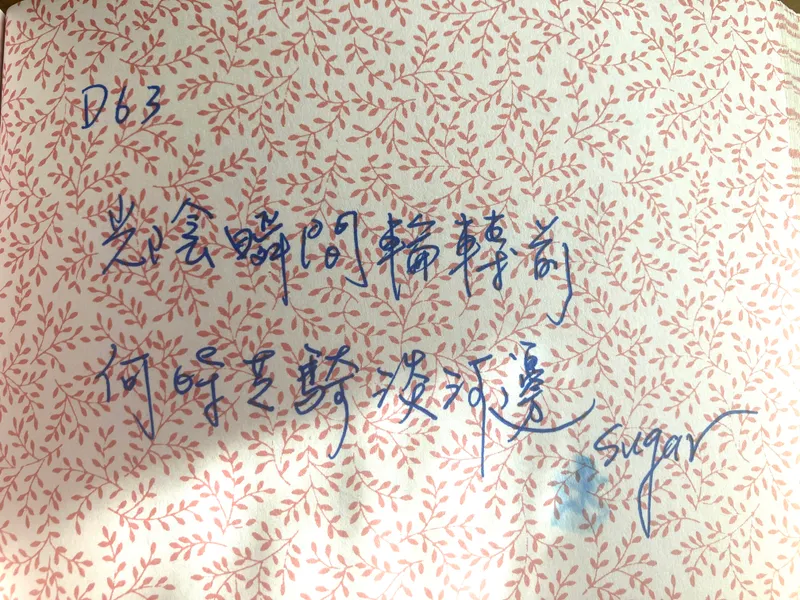 D63
光陰瞬間輪轉前
何時共騎淡河邊
sugar